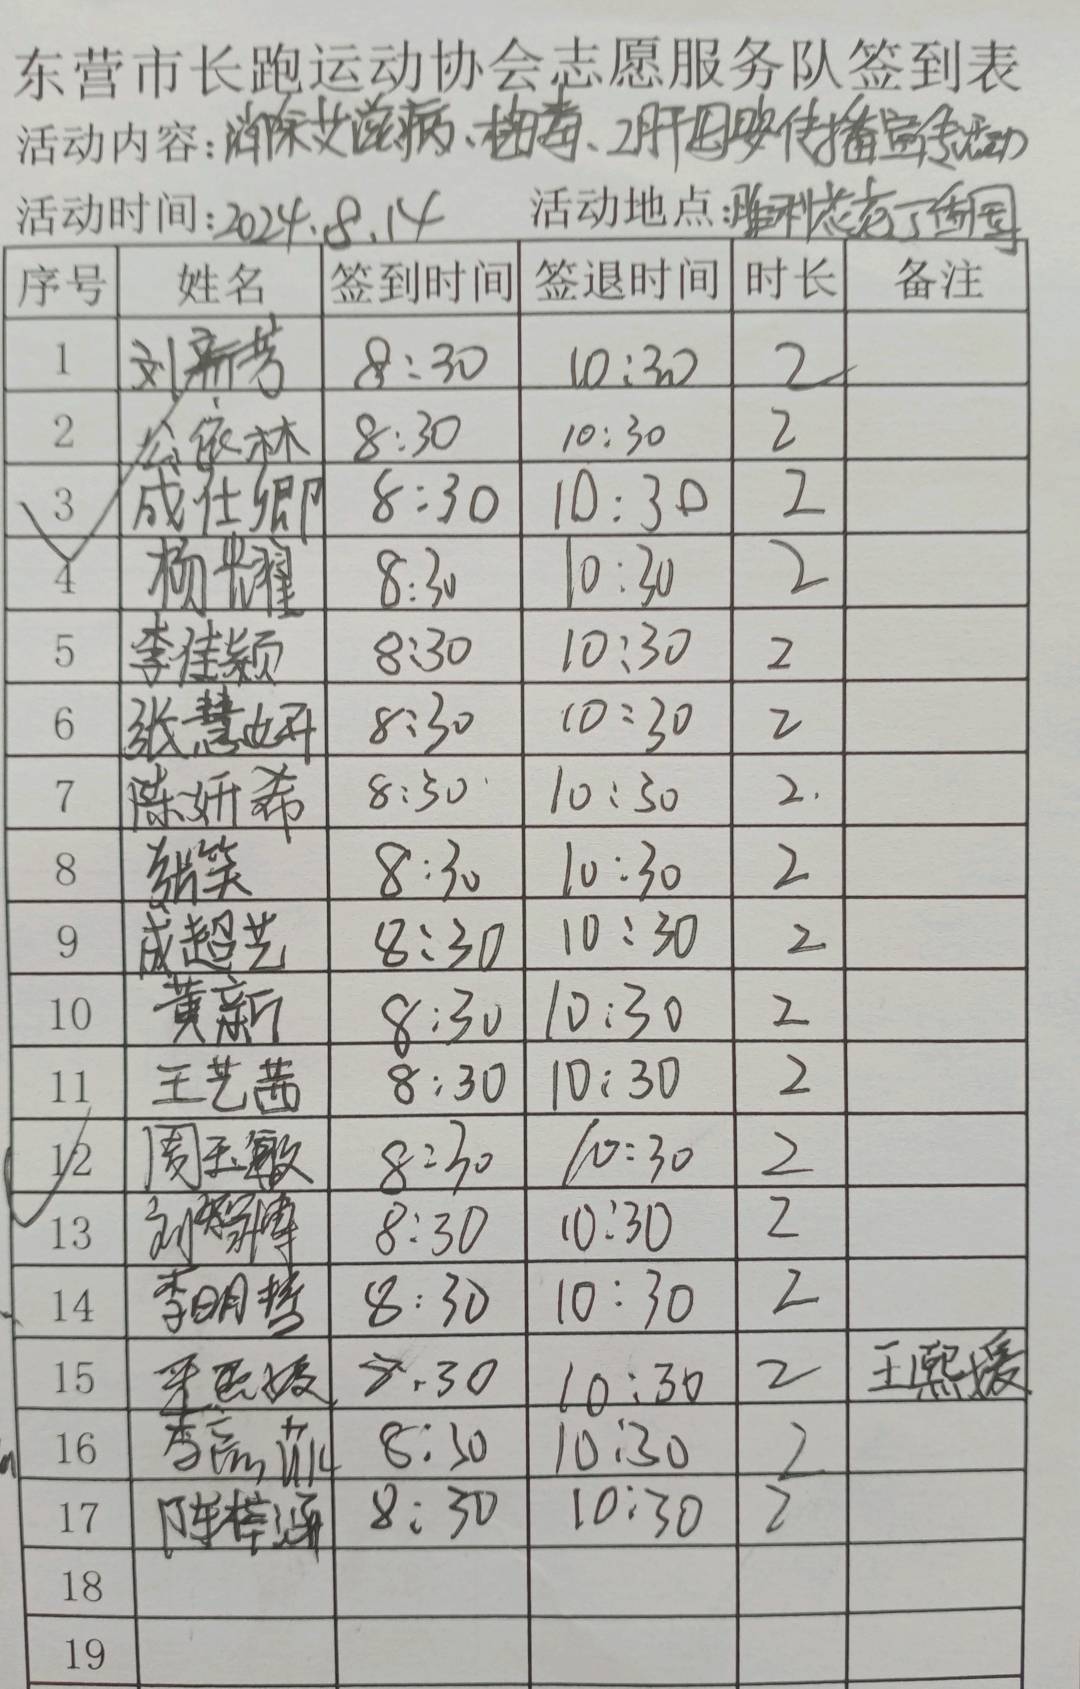 东营市长跑运动协会志愿服务队签到表
活动内容:消除艾滋病、梅毒、乙肝母婴传播宣传活动
活动时间:2024.8.14 活动地点:胜利
序号 姓名 签到时间 签退时间 时长 备注
1 刘新芳 8:30 10:30 2
2 公依林 8:30 10:30 2
3 成仕卿 8:30 10:30 2
4 杨耀 8:30 10:30 2
5 李佳颖 8:30 10:30 2
6 张慧妍 8:30 10:30 2
7 陈妍希 8:30 10:30 2.
8 张笑 8:30 10:30 2
9 成超艺 8:30 10:30 2
10 黄新 8:30 10:30 2
11 王艺茜 8:30 10:30 2
12 周玉敏 8:30 10:30 2
13 刘智博 8:30 10:30 2
14 李明哲 8:30 10:30 2
15 王熙媛 8:30 10:30 2 王熙媛
16 李 8:30 10:30 2
17 陈梓涵 8:30 10:30 2
18
19